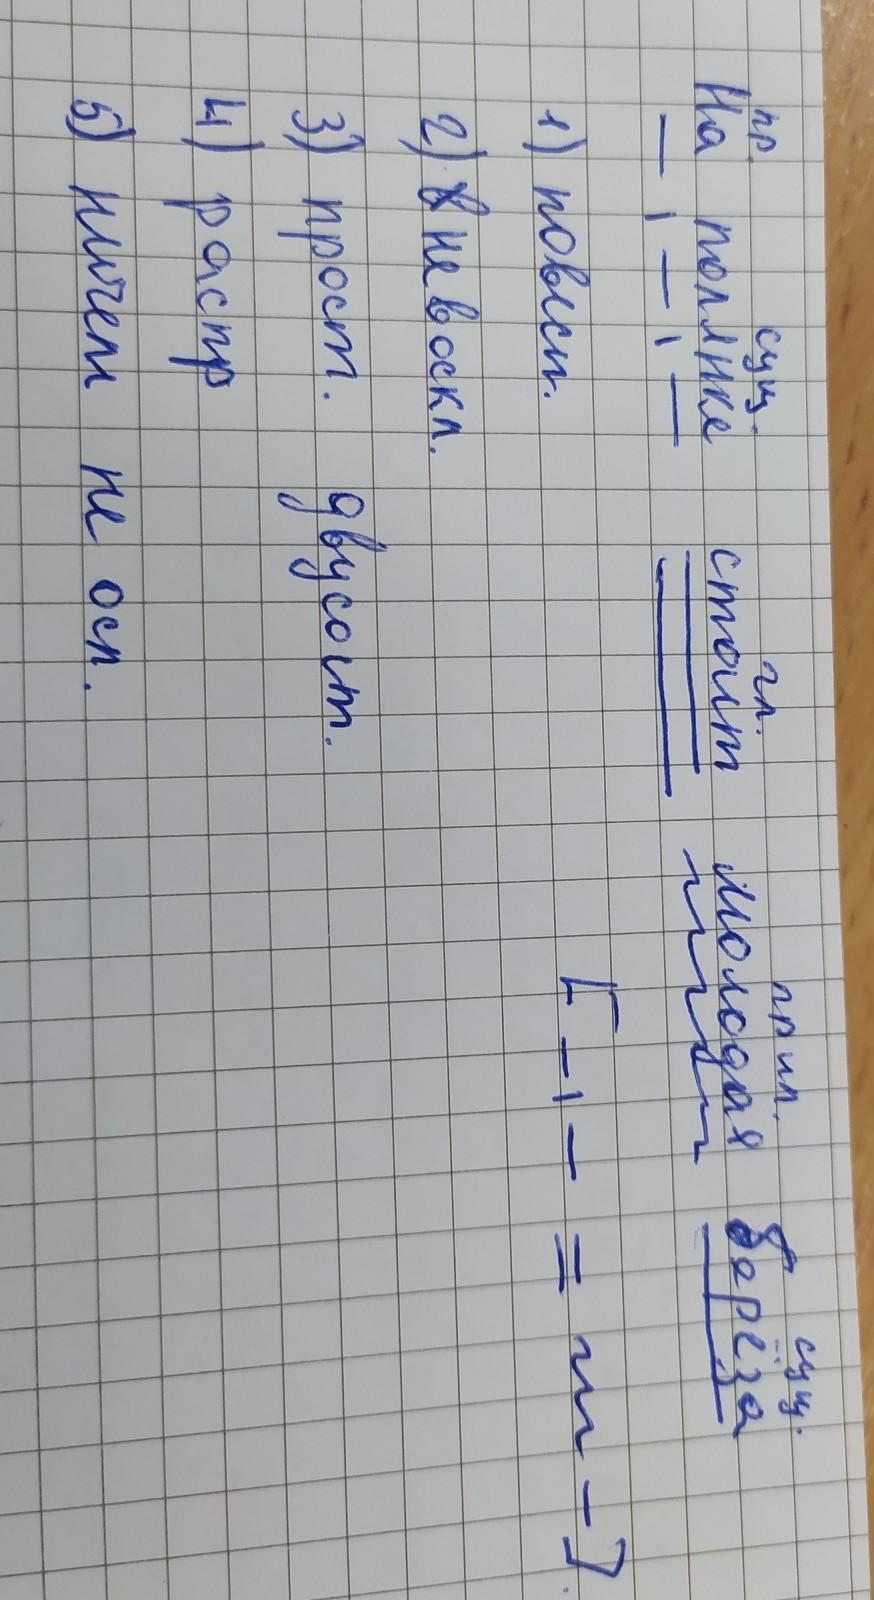 пр. сущ. гл. прил. сущ.
На полянке стоит молодая берёза
1) повест. [ – ' – = ~~ – ].
2) невоскл.
3) прост. двусост.
4) распр
5) ничем не осл.